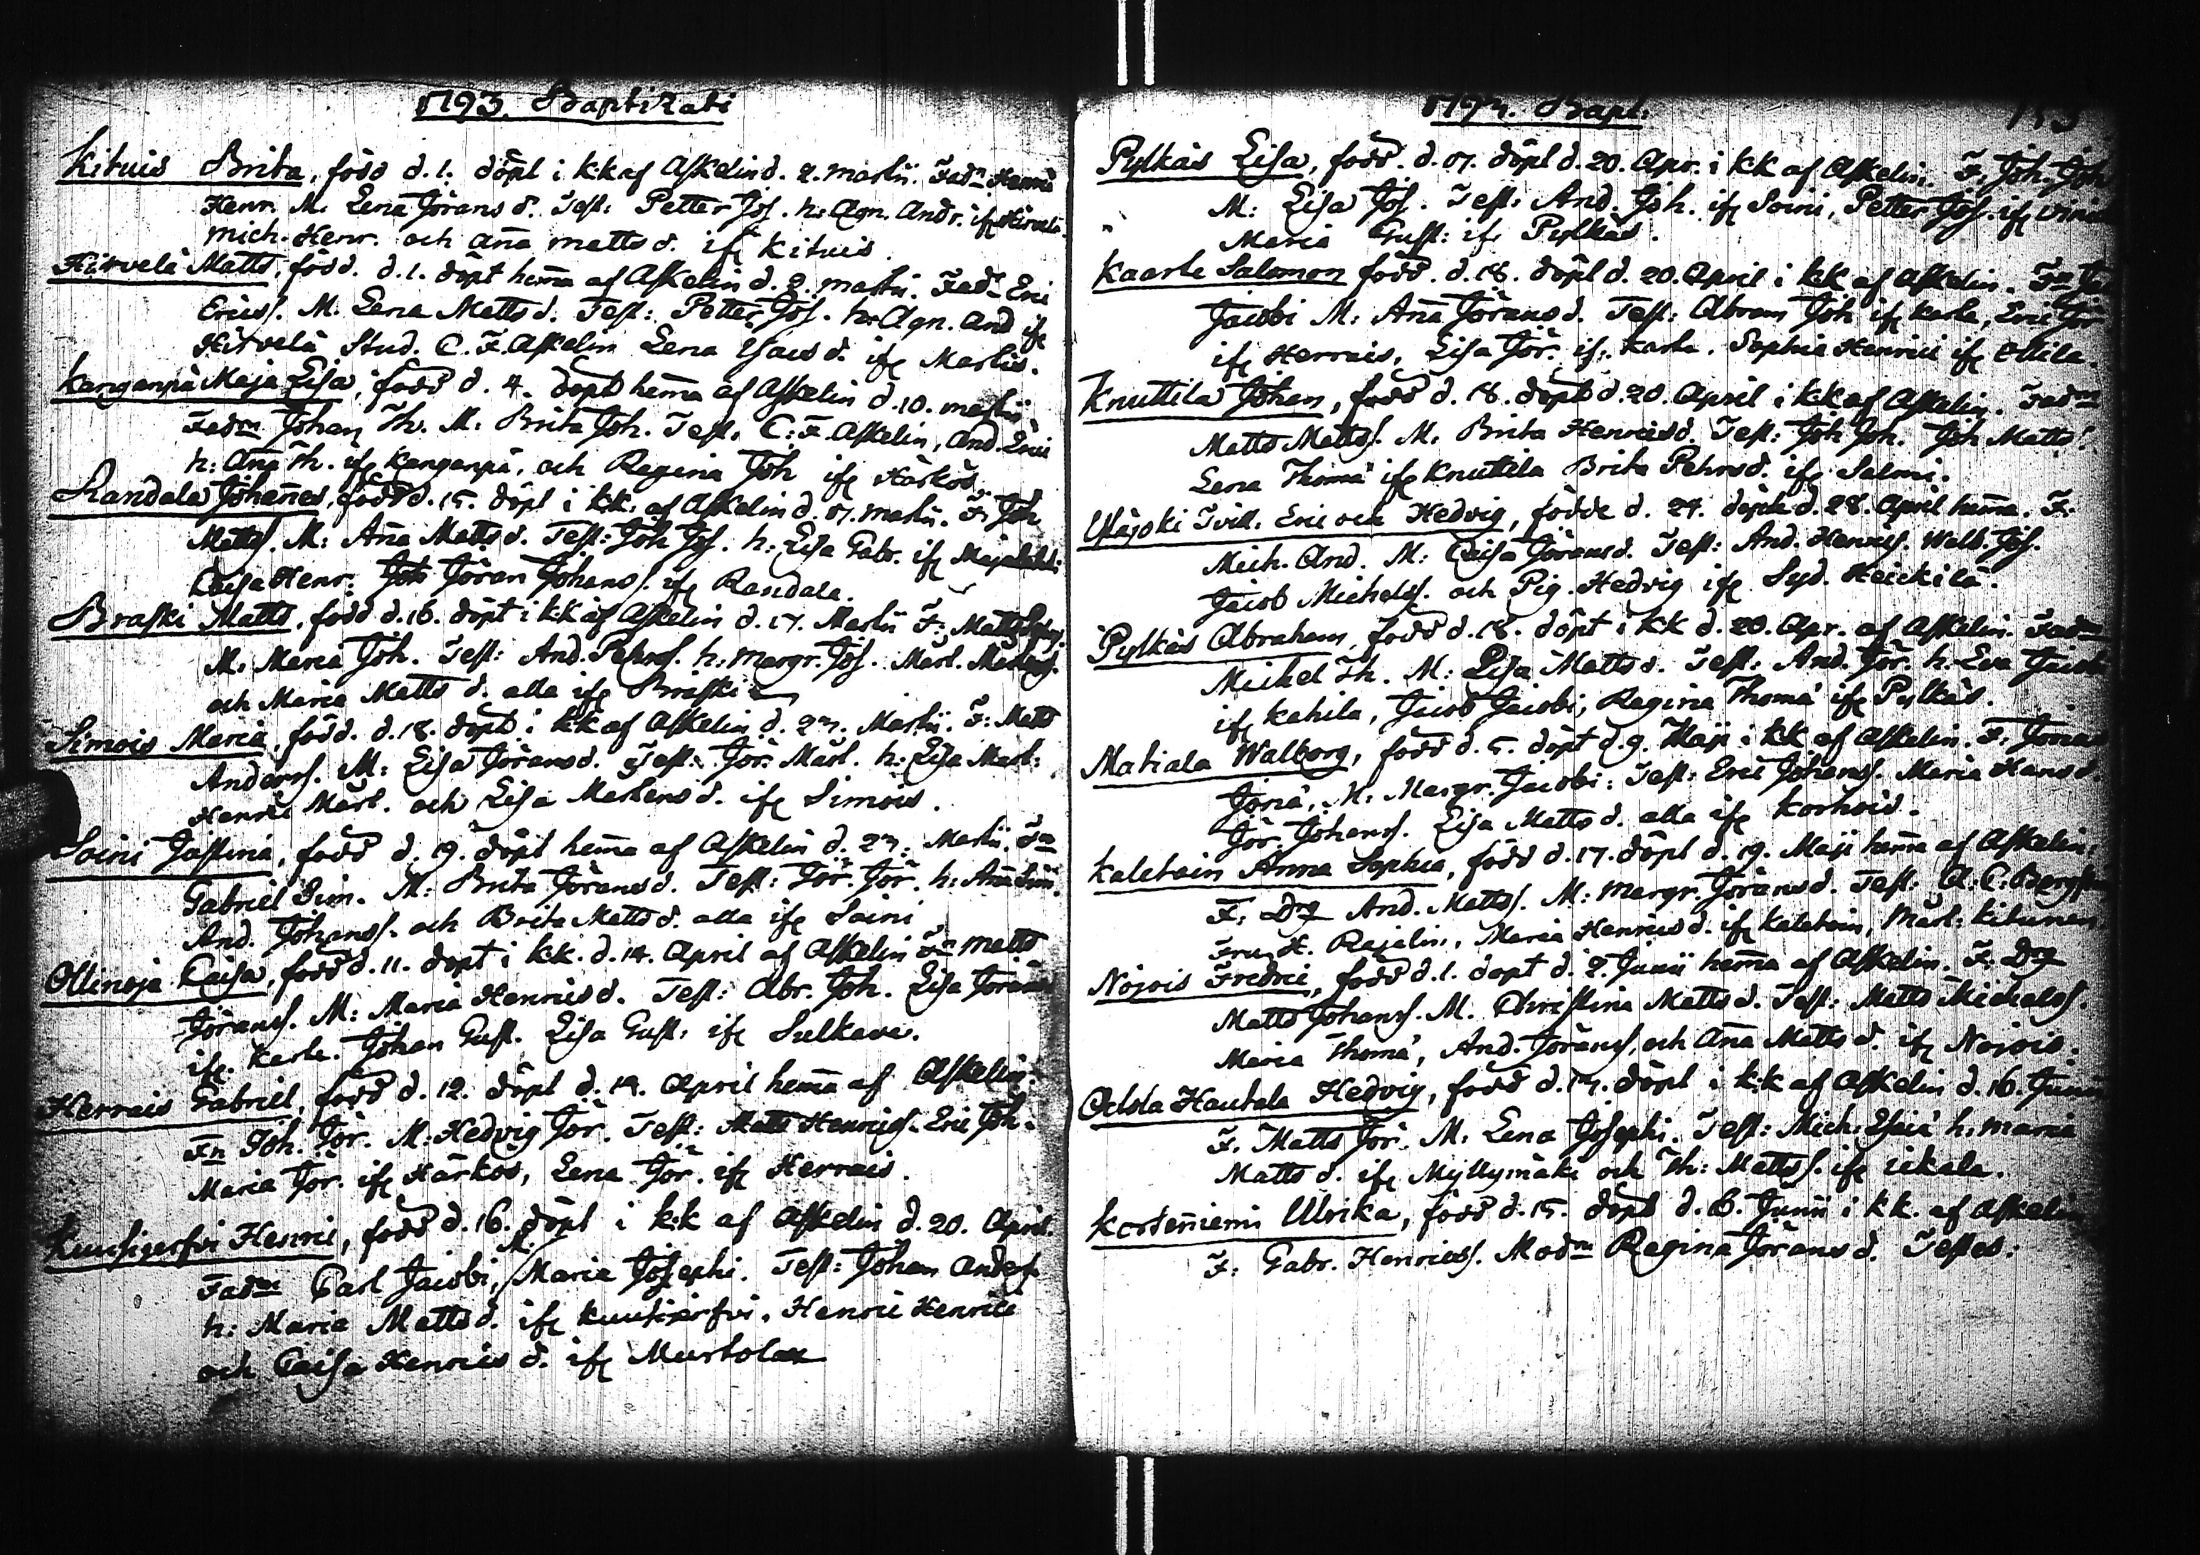 1793. Baptizati
Kituis Brita, född d. 1. döpt i kk af Askelin d. 2. Martii. Fadn Henric
Henr. M. Lena Jörans d. Test: Petter Jos. h: Agn. Andr. ifr Hirvelä
Mich. Henr. och Aña Matts d. ifr Kituis.
Hirvelä Matts, född. d. 1. döpt hem̃a af Askelin d. 2. Martii. Fadn Eric
Erics. M. Lena Matts d. Test: Petter Jos. h: Agn. And ifr
Hirvelä Stud. C. F. Askelin Lena d. ifr Martis.
Kanganpä Maja Lisa, född d. 4. döpt hem̃a af Askelin d. 10. Martii
Fadm Johan Th. M. Brita Joh. Test. C: F. Askelin, And. Eric
h: Aña Th. ifr Kanganpä, och Regina Joh ifr Härkös.
Randala Johannes, född d. 15. döpt i kk. af Askelin d. 17. Martii. F: Joh
Matts. M: Aña Matts d. Test: Joh Jos. h: Lisa Gabr. ifr
Caisa Henr: Joh Jöran Johans. ifr Randala.
Braski Matts, född d. 16. döpt i kk af Askelin d. 17. Martii F: Matts
M: Maria Joh. Test: And. Pehrs. h: Margr. Jos. Märt.
och Maria Matts d. alla ifr Braski
Simois Maria, född. d. 18. döpt i kk af Askelin d. 24. Martii. F: Matts
Anders. M: Lisa Jörans d. Test: Jör. Märt. h: Lisa Märt:
Henric Märt. och Lisa Mårtens d. ifr Simois.
Soini Justina, född d. 19. döpt hem̃a af Askelin d. 24. Martii. Fn
Gabriel Sim. M: Brita Jörans d. Test: Jör. Jör. h: Aña Sim.
And. Johans. och Brita Matts d. alla ifr Soini
Ollinoja Caisa, född d. 11. döpt i kk. d. 14. April af Askelin Fn Matts
Jörans. M: Maria Henrics d. Test: Abr. Joh. Lisa Jörans
ifr. Karle. Johan Gust. Lisa Gust: ifr Sulkava.
Herrais Gabriel, född d. 12. döpt d. 14. April hem̃a af Askelin.
Fn Joh. Jör. M: Hedvig Jör. Test: Matts Henrics. Eric Joh.
Maria Jör. ifr Härkös, Lena Jör. ifr Herrais.
Kuusijerfvi Henric, född d. 16. döpt i kk af Askelin d. 20. April.
Fadm Carl Jacobi, M. Maria Josephi. Test: Johan Anders.
h: Maria Matts d. ifr Kuusijerfvi, Henric Henrici
och Caisa Henrics d. ifr Murtola
1794. Bapt:
Pylkäs Lisa, född. d. 17. döpt d. 20. Apr. i kk af Askelin. F: Joh. Joh
M: Lisa Jos. Test: And. Joh. ifr Soini, Petter Jos. ifr
Maria Gust: ifr Pylkäs.
Kaarle Salomon född. d. 18. döpt d. 20. April i kk af Askelin. Fn
Jacobi M: Aña Jörans d. Test: Abram Joh ifr Karle, Eric Jör
ifr Herrais, Lisa Jör. ifr. Karle. Sophia Henrici ifr Ollila.
Knuttila Johan, född d. 18. döpt d. 20. April i kk af Askelin. Fadm
Matts Matts. M. Brita Henrics d. Test: Joh Joh. Joh Matts.
Lena Thomæ ifr Knuttila Brita Pehrs d. ifr Salmi.
Ylijoki Tvill. Eric och Hedvig, födde d. 27. döpte d. 28. April hem̃a. F:
Mich. And. M: Caisa Jörans d. Test: And. Henrics. Walb. Jos.
Jacob Michels. och Pig. Hedvig ifr Syd. Heickilä.
Pylkäs Abraham, född d. 18. döpt i kk d. 20. Apr. af Askelin. Fadm
Michel Th. M: Lisa Matts d. Test: And. Jör. h: Eva Jacobi
ifr Kahila, Jacob Jacobi, Regina Thomæ ifr Pylkäs.
Matiala Walborg, född d. 5. döpt d. 9. Maji i kk af Askelin. F: Jonas
Jonæ. M: Margr. Jacobi: Test: Eric Johans. Maria Hans d.
Jör. Johans. Lisa Matts d. alla ifr Korhois.
Kaletoin Anna Sophia, född d. 17. döpt d. 19. Maji hem̃a af Askelin.
F. Drg And. Matts. M: Margr. Jörans d. Test: A. C.
Fru H. Rajalin, Maria Henrics d. ifr Kaletoin, Märt: Kitunen
Nojois Fredric, född d. 1. döpt d. 2. Junii hem̃a af Askelin. F. Drg
Matts Johans. M. Christina Matts d. Test: Matts Michels.
Maria Thomæ, And. Jörans. och Aña Matts d. ifr Nojois.
Hautala Hedvig, född d. 14. döpt i kk af Askelin d. 16. Junii
F. Matts Jör. M. Lena Josephi. Test: Mich: h: Maria
Matts d. ifr Myllymäki och Th: Matts. ifr
Kortenniemi Ulrika, född d. 15. döpt d. 16. Junii i kk. af Askelin
F: Gabr. Henrics. Modm Regina Jörans d. Testes: